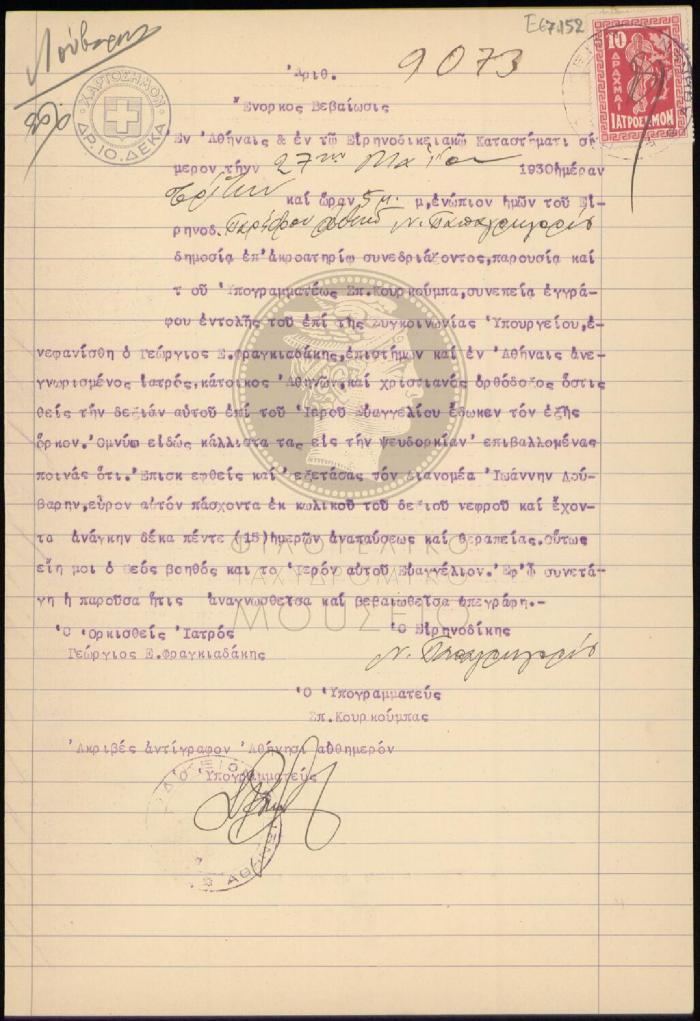 Λούβαρης
Ε67.152
10
ΔΡΑΧΜΑΙ
ΙΑΤΡΟΣΗΜΟΝ
ΧΑΡΤΟΣΗΜΟΝ
ΔΡ. 10. ΔΕΚΑ
Ἀριθ. 9073
Ἔνορκος Βεβαίωσις
Εν Ἀθήναις & ἐν τῶ Εἰρηνοδικειακῶ Καταστήματι σή-
μερον τήν 27ην Μαΐου 1930ἡμέραν
Τρίτην καί ὥραν 5 μ. μ,ἐνώπιον ἡμῶν τοῦ Εἰ-
ρηνοδ. Παρέδρου Ν. Παπαγρηγορίου
δημοσία ἐπ'ἀκροατηρίω συνεδριάζοντος,παρουσία καί
τ οῦ Ὑπογραμματέως Σπ.Κουρκούμπα,συνεπεία ἐγγρά-
φου ἐντολῆς τοῦ ἐπί τῆς Συγκοινωνίας Ὑπουργείου,ἐ-
νεφανίσθη ὁ Γεώργιος Ε.Φραγκιαδάκης,ἐπιστήμων καί ἐν Ἀθήναις ἀνε-
γνωρισμένος ἰατρός,κάτοικος Ἀθηνῶν,καί χριστιανός ὀρθόδοξος ὅστις
θείς τήν δεξιάν αὐτοῦ ἐπί τοῦ Ἱεροῦ Εὐαγγελίου ἔδωκεν τόν ἑξῆς
ὅρκον.Ὀμνύω εἰδώς κάλλιστα τας εἰς τήν ψευδορκίαν ἐπιβαλλομένας
ποινάς ὅτι.Ἐπισκ εφθείς καί ἐξετάσας τόν Διανομέα Ἰωάννην Λού-
βαρην,εὗρον αὐτόν πάσχοντα ἐκ κωλικοῦ τοῦ δεξιοῦ νεφροῦ καί ἔχον-
τα ἀνάγκην δέκα πέντε (15)ἡμερῶν ἀναπαύσεως καί θεραπείας.Οὕτως
εἴη μοι ὁ Θεός βοηθός και το Ἱερόν αὐτοῦ Εὐαγγέλιον.Ἐφ'ᾧ συνετά-
γη ἡ παροῦσα ἥτις ἀναγνωσθεῖσα καί βεβαιωθεῖσα ὑπεγράφη.-
Ὁ Ὁρκισθείς Ἰατρός Ὁ Εἰρηνοδίκης
Γεώργιος Ε.Φραγκιαδάκης Ν. Παπαγρηγορίου
Ὁ Ὑπογραμματεύς
Σπ.Κουρκούμπας
Ἀκριβές ἀντίγραφον Ἀθήνησι αὐθημερόν
Ὁ Ὑπογραμματεύς
ΦΙΛΟΤΕΛΙΚΟ
ΤΑΧΥΔΡΟΜΙΚΟ
ΜΟΥΣΕΙΟ